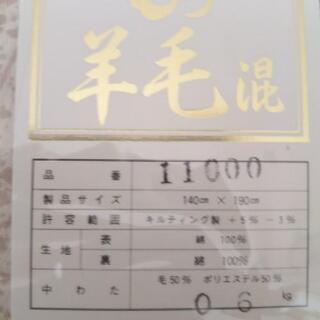 羊毛混
品番 11000
製品サイズ 140㎝ × 190㎝
許容範囲 キルティング製 +5% -3%
生地 表 綿 100%
裏 綿 100%
中わた 毛50% ポリエステル50%
0 6 kg